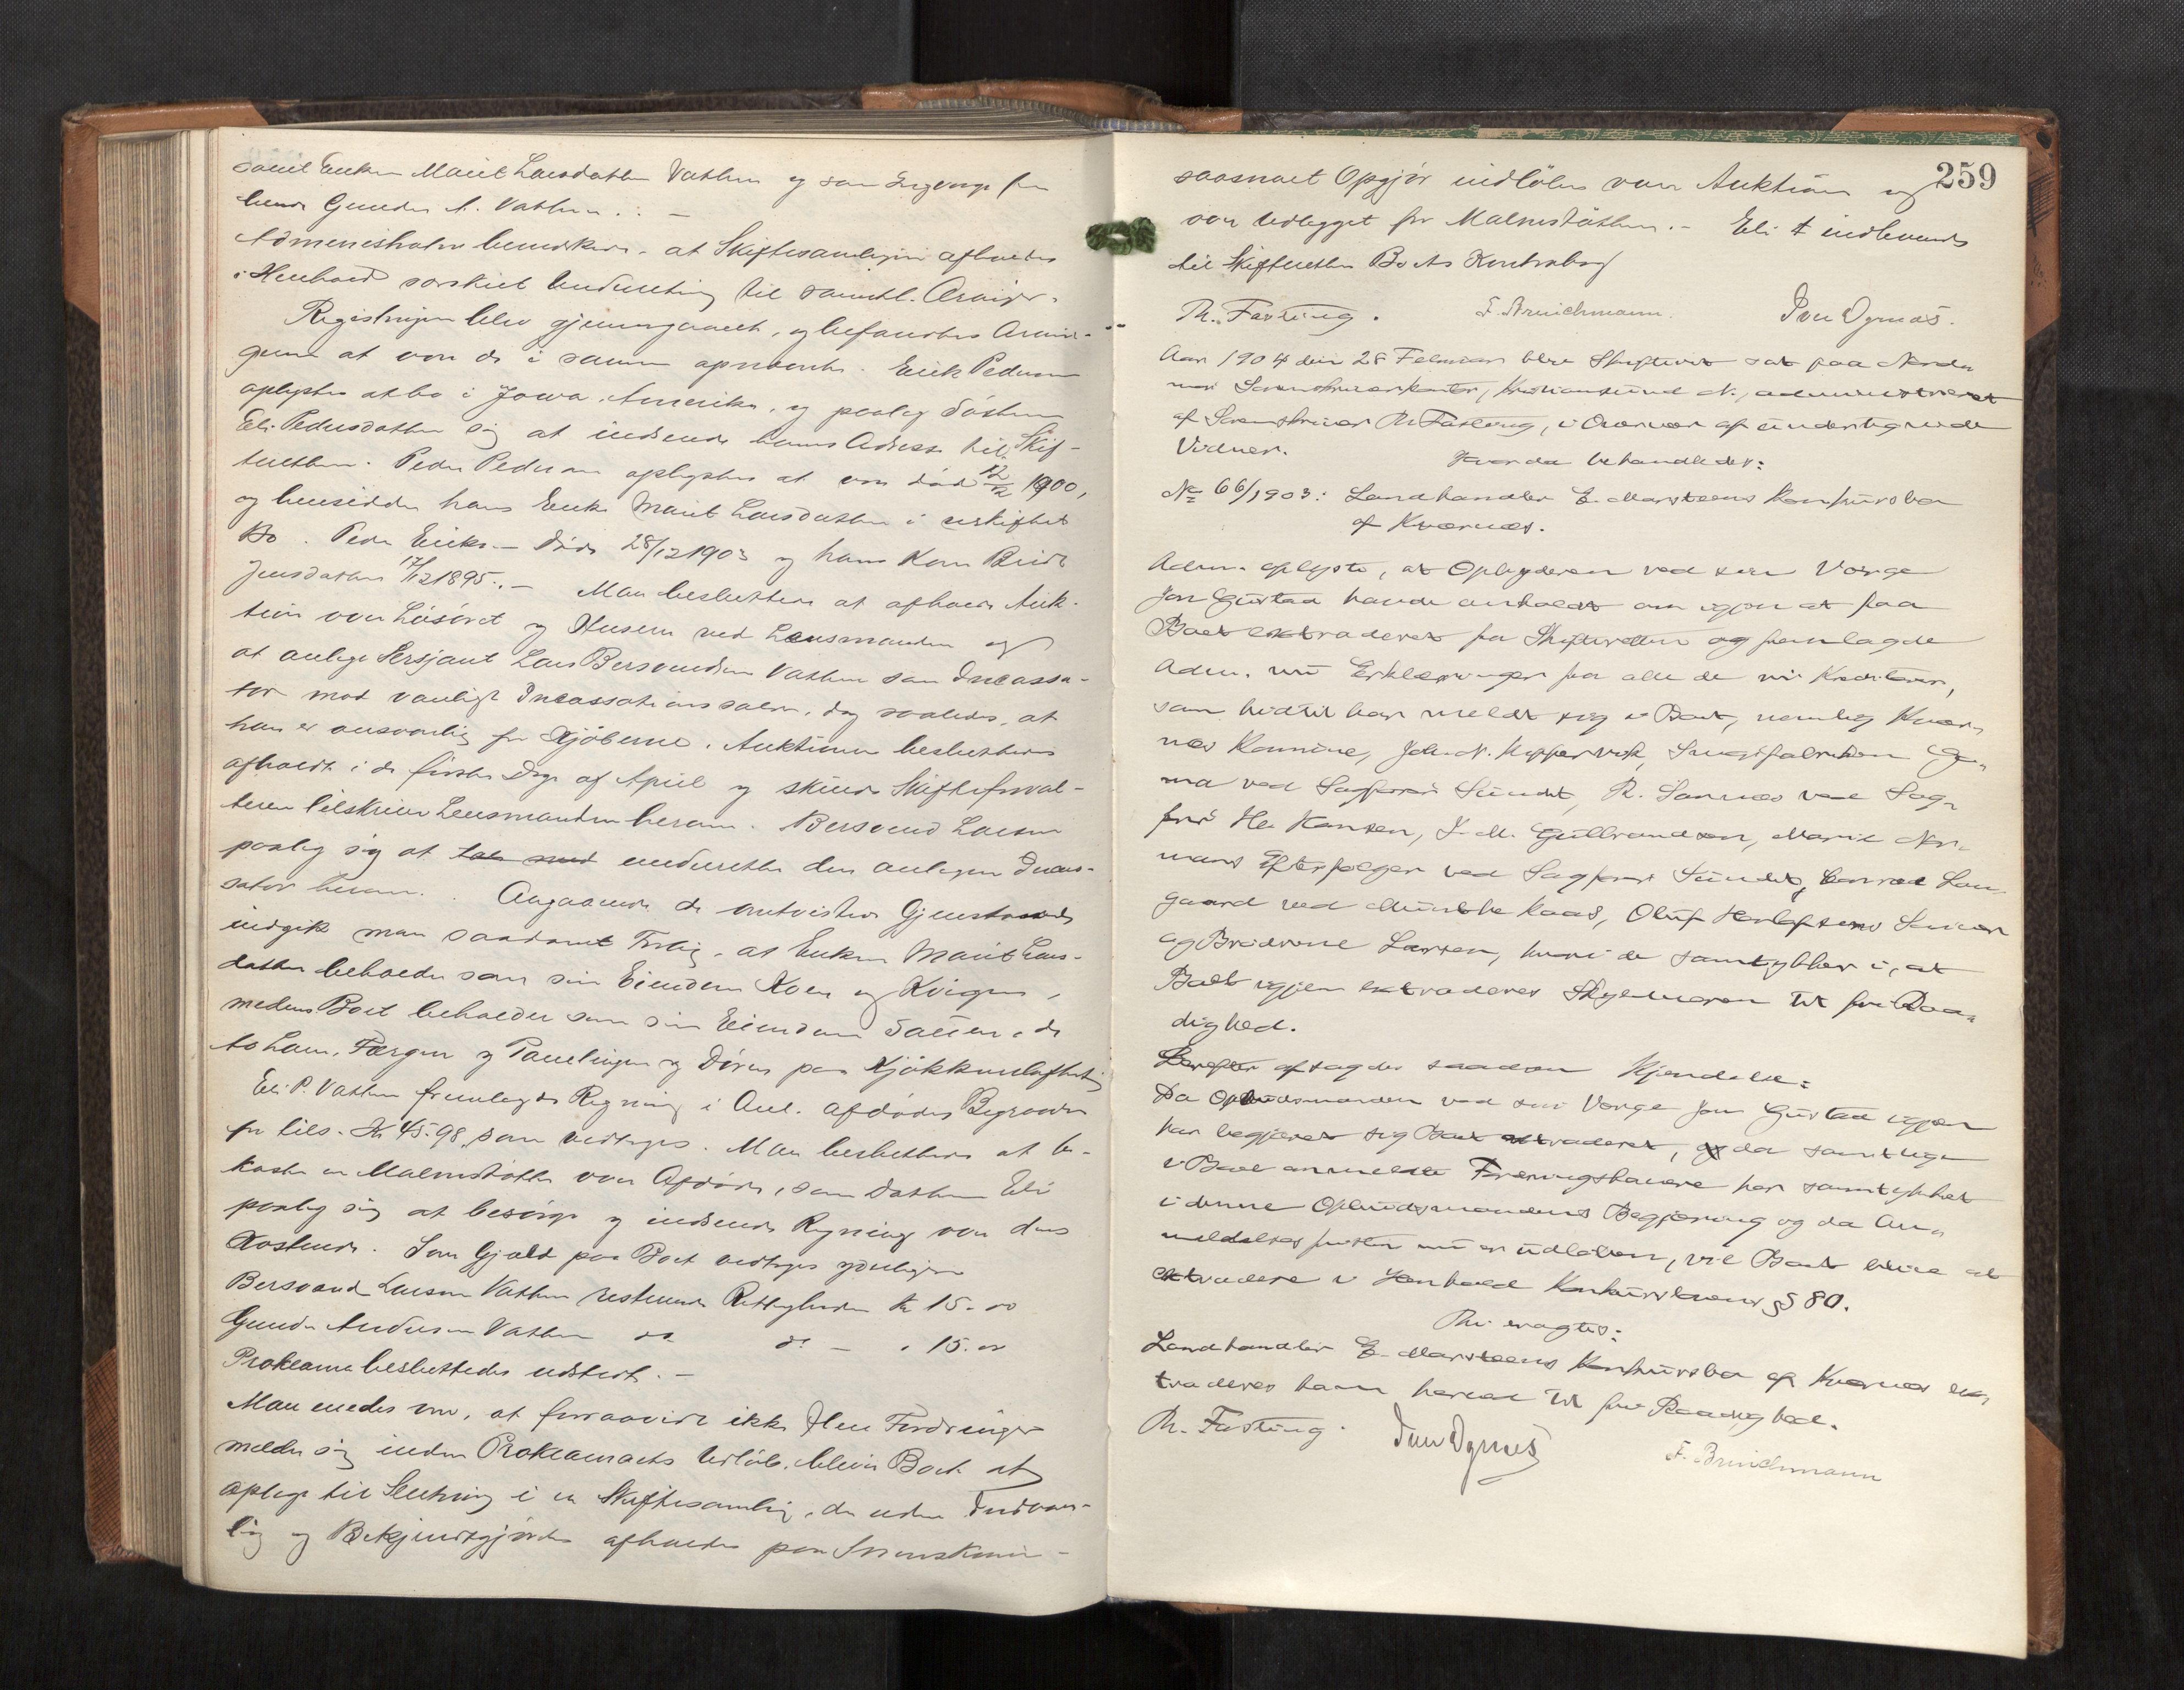 samt Enken Marit Larsdatter Vatten og som Lagverge for
hende Gunder A. Vatten. –
Administrator bemerkede, at Skiftesamlingen afholdes
i Henhold særskilt Underretning til samtl. Arvinger.
Registringen blev gjennemgaaet, og befandtes Arvin-
gerne at være de i samme opnævnte. Erik Pedersen
oplystes at bo i Jowa, Amerika, og paalog Søsteren
Eli Pedersdatter sig at indsende hans Adresse til Skif-
teretten. Peder Pedersen oplystes at være død 12/2 1900,
og hensidder hans Enke Marit Larsdatter i uskiftet
Bo. Peder Eriksen døde 28/12 1903 og hans Kone Berit
Jensdatter 17/12 1895. – Man besluttede at afholde Auk-
tion over Løsøret og Husene ved Lensmanden og
at antage Sersjant Lars Bersvendsen Vatten som Incassa-
tor mod vanligt Incassationssalær, dog saaledes, at
han er ansvarlig for Kjøberne. Auktionen besluttedes
afholdt i de første Dage af April og skulde Skifteforval-
teren tilskrive Lensmanden herom. Bersvend Larsen
paalog sig at underrette den antagne Incas-
sator herom. Angaaende de omtvistede Gjenstande
indgik man saadant Forlig, at Enken Marit Lars-
datter beholder som sin Eiendom Koen og Kvigen,
medens Boet beholder som sin Eiendom Sauen, de
to Lam, Færgen og Panelingen og Døren paa Kjøkkenloftet
Eli P. Vatten fremlagde Regning i Anl. afdødes Begravelse
for tils. Kr 45.98, som vedtoges. Man besluttede at be-
koste en Malmstøtte over Afdøde, som Datteren Eli
paalog sig at besørge og indsende Regning over dens
Kostende. Som Gjæld paa Boet vedtoges yderligere
Bersvend Larsen Vatten resterende Rettigheder Kr 15.00
Gunder Andersen Vatten do do – " 15.00
Proklama besluttedes udstedt. –
Man enedes om, at forsaavidt ikke flere Fordringer
melder sig inden Proklamaets Udløb, bliver Boet at
optage til Slutning i en Skiftesamling, der uden Indvars-
ling og Bekjendtgjørelse afholdes paa Sorenskriver-
259
saasnart Opgjør indløber over Auktion og
over Udlægget for Malmstøtten. – Eli indleverede
til Skifteretten Boets Kontrabog
Th. Fasting. F. Brinchmann. Iver Ognæs.
Aar 1904 den 28 Februar blev Skifteret sat paa Nord-
møre Sorenskriverkontor, Kristiansund N., administreret
af Sorenskriver Th Fasting, i Overvær af undertegnede
Vidner. Hvorda behandledes:
No 66/1903: Landhandler E. Marsteens Konkursbo
af Kværnes.
Adm. oplyste, at Opbyderen ved sin Værge
Jon Gustad havde anholdt om igjen at faa
Boet extraderet fra Skifteretten og fremlagde
Adm. nu Erklæringer fra alle de ni Kreditorer,
som hidtil har meldt sig i Boet, nemlig Kvær-
nes Kommune, Joh. N. Uppervik, Snusfabriken
ma ved Sagfører Sundt, R. Sannæs ved Sag-
fører He. Hansen, J. M. Gulbrandson, Marie Nor-
manns Efterfølger ved Sagfører Sundt, Conrad Lan-
gaard ved Munthe Kaas, Oluf Herlofsens Senior
og Brødrene Larsen, hvori de samtykker i, at
Boet igjen extraderes Skyldneren til fri Raa-
dighed.
Derefter afsagdes saadan Kjendelse:
Da Opbudsmanden ved sin Værge Jon Gustad igjen
har begjæret sig Boet extraderet, og da samtlige
i Boet anmeldte Fordringshavere har samtykket
i denne Opbudsmandens Begjæring og da An-
meldelsesfristen nu er udløben, vil Boet blive at
extradere i Henhold Konkurslovens § 80.
Thi eragtes:
Landhandler E. Marsteens Konkursbo af Kværnes ex-
traderes ham herved til fri Raadighed.
Th. Fasting. Iver Ognæs F. Brinchmann